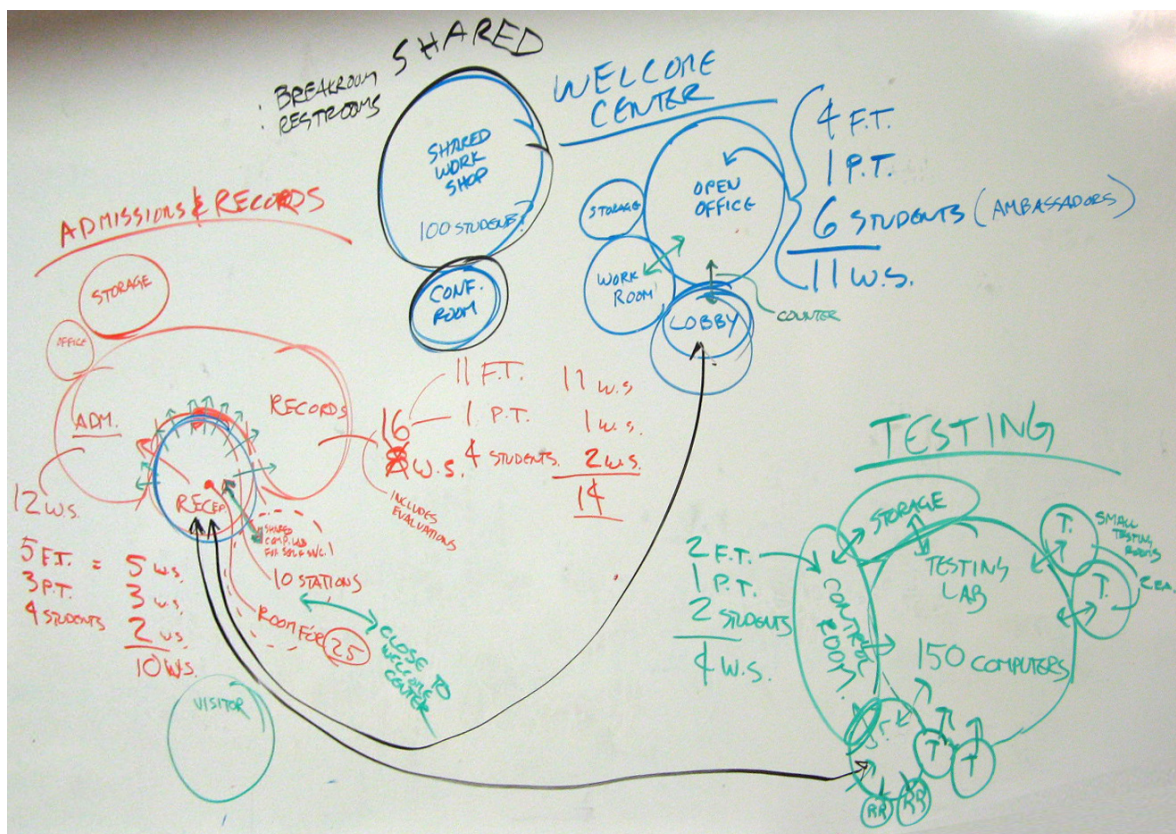 SHARED
: BREAKROOM
: RESTROOMS
SHARED
WORK
SHOP
100 STUDENTS?
CONF.
ROOM
WELCOME
CENTER
STORAGE
OPEN
OFFICE
WORK
ROOM
LOBBY
COUNTER
4 F.T.
1 P.T.
6 STUDENTS (AMBASSADORS)
11 W.S.
ADMISSIONS & RECORDS
STORAGE
OFFICE
ADM.
RECORDS
RECEP
12 W.S.
5 F.T. = 5 W.S.
3 P.T. 3 W.S.
4 STUDENTS 2 W.S.
10 W.S.
16
W.S.
INCLUDES
EVALUATIONS
11 F.T. 11 W.S
1 P.T. 1 W.S.
4 STUDENTS. 2 W.S.
14
SHARED
FOR
10 STATIONS
ROOM FOR 25
CLOSE TO
WELCOME
CENTER
VISITOR
TESTING
STORAGE
TESTING
LAB
150 COMPUTERS
CONTROL
ROOM
T.
SMALL
TESTING
ROOMS
T.
2 EA.
2 F.T.
1 P.T.
2 STUDENTS
4 W.S.
T
T
RR
RR